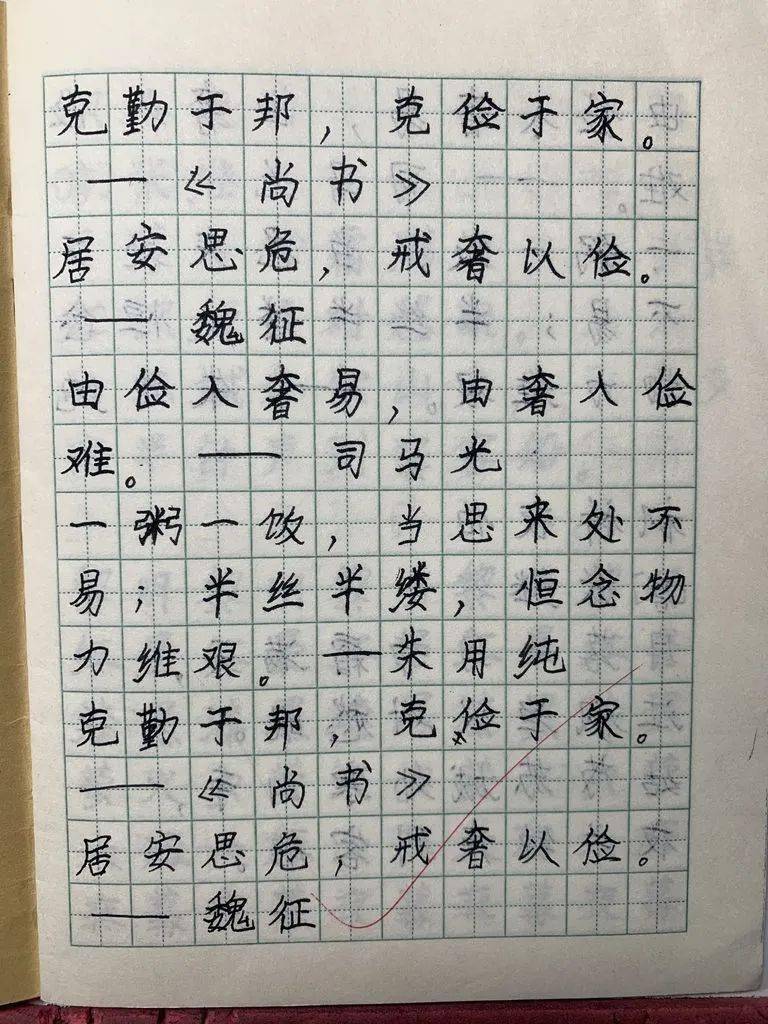 克勤于邦，克俭于家。
——《尚书》
居安思危，戒奢以俭。
——魏征
由俭入奢易，由奢入俭
难。——司马光
一粥一饭，当思来处不
易；半丝半缕，恒念物
力维艰。——朱用纯
克勤于邦，克俭于家。
——《尚书》
居安思危，戒奢以俭。
——魏征